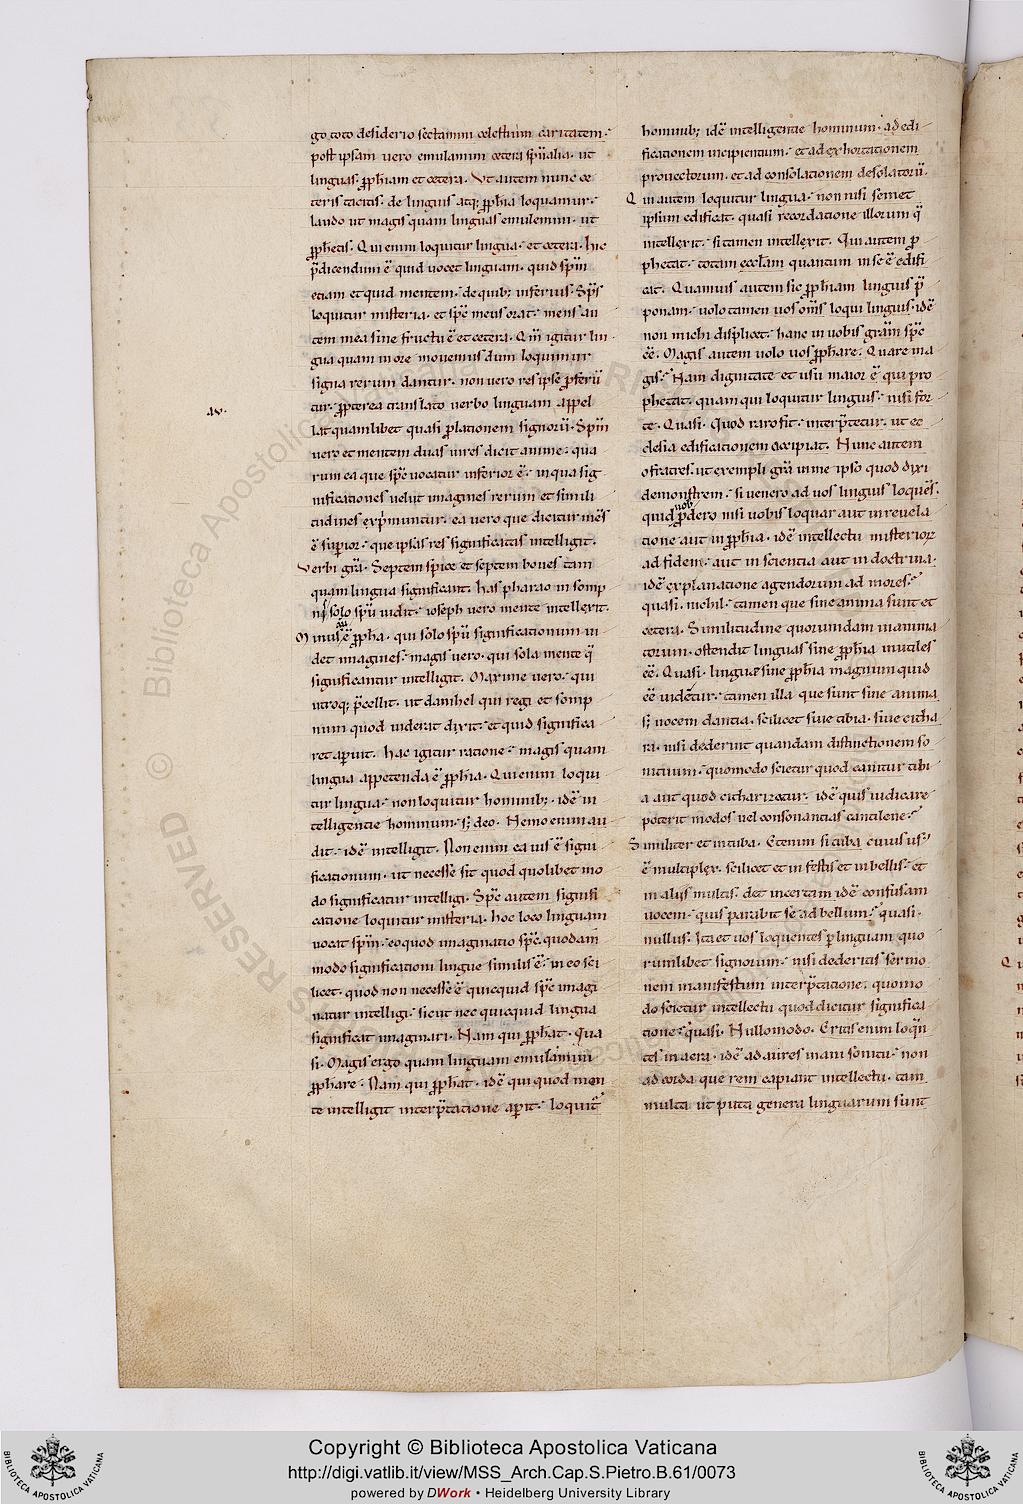 go toto desiderio sectamini celestium caritatem.
post ipsam uero emulamini cetera sp̄ualia. ut
linguas. ꝓphiam et cetera. Vt autem nunc ce
teris tacitis. de linguis atq; ꝓphia loquamur.
laudo ut magis quam linguas emulemini. ut
ꝓphetis. Qui enim loquitur lingua. et cetera. hic
p̄dicendum ē quid uocet linguam. quid sp̄m
etiam et quid mentem. de quib; inferius. Sp̄s
loquitur misteria. et sp̄c meus orat. mens au
tem mea sine fructu ē et cetera. Qm̄ igitur lin
gua quam in ore mouemus dum loquimur
signa rerum dantur. non uero res ipse ꝓferū
tur. ꝓpterea translato uerbo linguam appel
lat quamlibet quasi ꝓlationem signorū. Sp̄m
uero et mentem duas uires dicit anime. qua
rum ea que sp̄c uocatur inferior ē. in qua sig
nificationes uelut imagines rerum et simili
tudines exp̄muntur. ea uero que dicitur mēs
ē suꝑior. que ipsas res significatas intelligit.
Verbi grā. Septem spice et septem boues tam
quam lingua significant. has pharao in somp
nis solo sp̄u uidit. ioseph uero mente intellexit.
Minus ē ꝓpha. qui solo sp̄u significationum ui
det imagines. magis uero. qui sola mente q̄
significantur intelligit. Maxime uero. qui
utroq; p̄cellit. ut danihel qui regi et somp
nium quod uiderat dixit. et quid significa
ret aꝑuit. Hac igitur ratione. magis quam
lingua appetenda ē ꝓphia. Qui enim loqui
tur lingua. non loquitur hominib; . idē in
telligentie hominum. s; deo. Nemo enim au
dit. idē intelligit. Non enim ea uis ē signi
ficationum. ut necesse sit quod quolibet mo
do significatur intelligi. Sp̄c autem signifi
catione loquitur misteria. hoc loco linguam
uocat sp̄m. eo quod imaginatio sp̄c. quodam
modo significationi lingue similis ē. in eo sci
licet. quod non necesse ē quicquid sp̄c imagi
natur intelligi. sicut nec quicquid lingua
significat imaginari. Nam qui ꝓphat. Qua
si. Magis ergo quam linguam emulamini
ꝓphare. Nam qui ꝓphat. idē qui quod men
te intelligit interp̄tatione aꝑit. loquit᷑
au.
hominib; idē intelligentie hominum. ad edi
ficationem incipientium. et ad exhortationem
prouectorum. et ad consolationem desolatorū.
Qui autem loquitur lingua. non nisi semet
ipsum edificat. quasi recordatione illorum q̄
intellexit. si tamen intellexit. Qui autem ꝓ
phetat. totam eccl̄am quantum in se ē edifi
cat. Quamuis autem sic ꝓphiam linguis p̄
ponam. uolo tamen uos om̄s loqui linguis. idē
non michi displicet. hanc in uobis grām sp̄c
ēē. Magis autem uolo uos ꝓphare. Quare ma
gis? Nam dignitate et usu maior ē qui pro
phetat. quam qui loquitur linguis. nisi for
te. Quasi. Quod raro fit. interp̄tetur. ut ec
clesia edificationem accipiat. Nunc autem
o fratres. ut exempli grā in me ipso quod dixi
demonstrem. si uenero ad uos linguis loquēs.
uob
quid ꝓdero nisi uobis loquar aut in reuela
tione aut in ꝓphia. idē intellectu misterior
ad fidem. aut in scientia aut in doctrina.
idē explanatione agendorum ad mores?
quasi. nichil. tamen que sine anima sunt et
cetera. Similitudine quorumdam inanima
torum. ostendit linguas sine ꝓphia inutiles
ēē. Quasi. linguæ sine ꝓphia magnum quid
ēē uidētur. tamen illa que sunt sine anima
s; uocem dantia. scilicet siue tibia. siue citha
ra. nisi dederint quandam distinctionem so
nituum. quomodo scietur quod canitur tibi
a aut quod citharizatur. idē quis iudicare
poterit modos uel consonantias cantilene?
Similiter et in tuba. Etenim si tuba cuius us᷒
ē multiplex. scilicet et in festis et in bellis. et
in aliis multis. det incertam idē confusam
uocem. quis parabit se ad bellum? quasi.
nullus. Ita et uos loquentes ꝑ linguam quo
rumlibet signorum. nisi dederitis sermo
nem manifestum interp̄tatione. quomo
do scietur intellectu quod dicitur significa
tione? quasi. Nullomodo. Eritis enim loq̄n
tes in aera. idē ad aures inani sonitu. non
ad corda que rem capiant intellectu. tam
multa ut puta genera linguarum sunt
Copyright © Biblioteca Apostolica Vaticana
http://digi.vatlib.it/view/MSS_Arch.Cap.S.Pietro.B.61/0073
powered by DWork • Heidelberg University Library